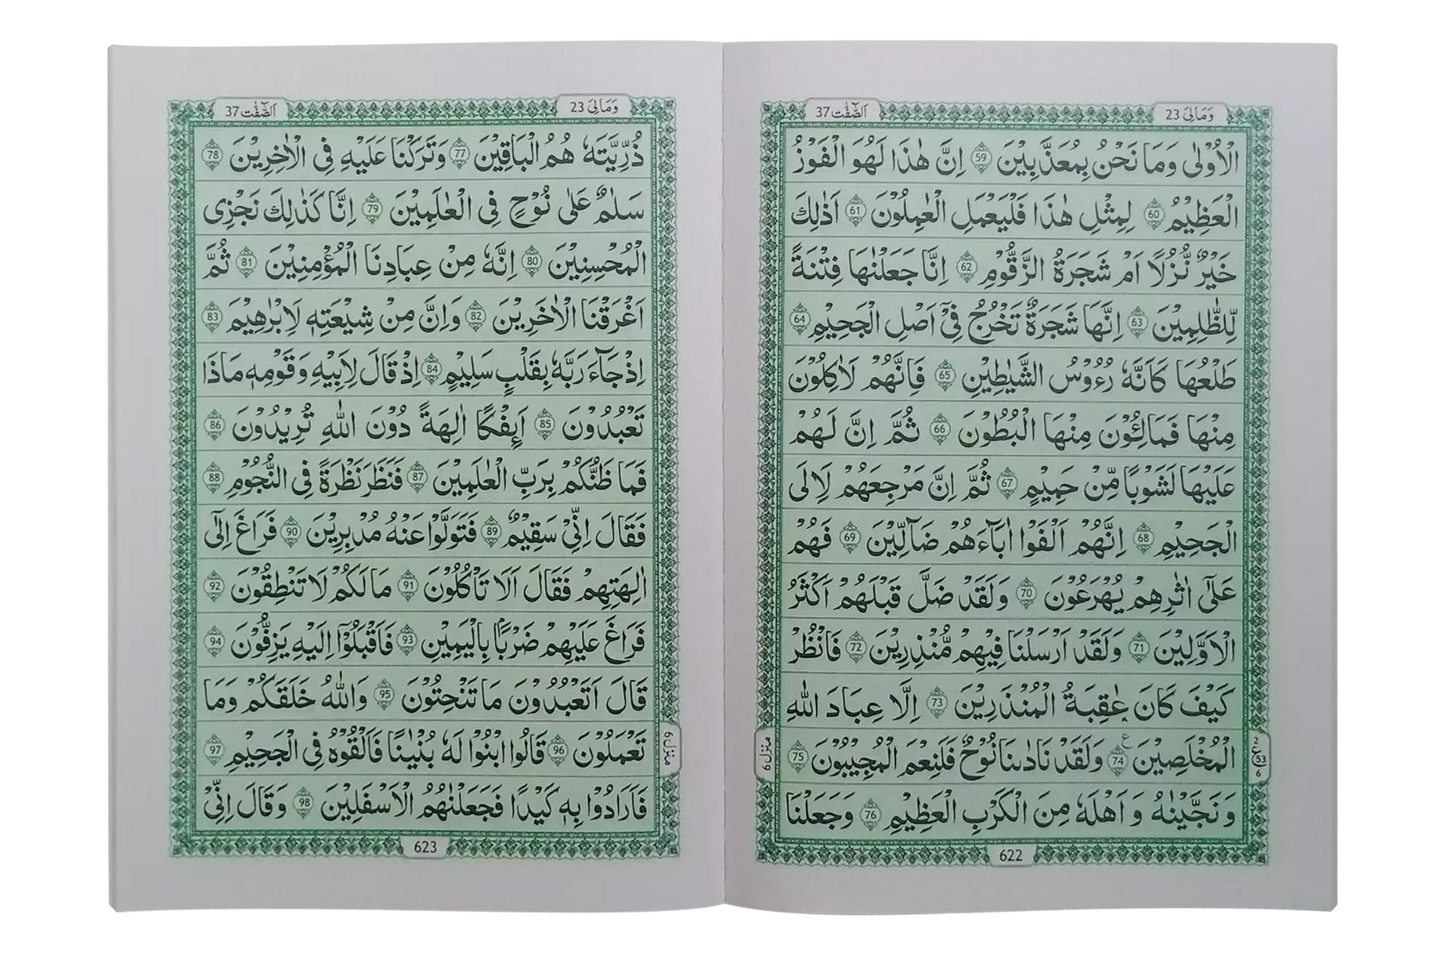 وَمَالِیَ 23
اَلصّٰٓفّٰت 37
الْاُوْلٰى وَمَا نَحْنُ بِمُعَذَّبِيْنَ 59 اِنَّ هٰذَا لَهُوَ الْفَوْزُ
الْعَظِيْمُ 60 لِمِثْلِ هٰذَا فَلْيَعْمَلِ الْعٰمِلُوْنَ 61 اَذٰلِكَ
خَيْرٌ نُّزُلًا اَمْ شَجَرَةُ الزَّقُّوْمِ 62 اِنَّا جَعَلْنٰهَا فِتْنَةً
لِّلظّٰلِمِيْنَ 63 اِنَّهَا شَجَرَةٌ تَخْرُجُ فِىْٓ اَصْلِ الْجَحِيْمِ 64
طَلْعُهَا كَاَنَّهٗ رُءُوْسُ الشَّيٰطِيْنِ 65 فَاِنَّهُمْ لَاٰكِلُوْنَ
مِنْهَا فَمَالِئُوْنَ مِنْهَا الْبُطُوْنَ 66 ثُمَّ اِنَّ لَهُمْ
عَلَيْهَا لَشَوْبًا مِّنْ حَمِيْمٍ 67 ثُمَّ اِنَّ مَرْجِعَهُمْ لَاِلَى
الْجَحِيْمِ 68 اِنَّهُمْ اَلْفَوْا اٰبَآءَهُمْ ضَآلِّيْنَ 69 فَهُمْ
عَلٰٓى اٰثٰرِهِمْ يُهْرَعُوْنَ 70 وَلَقَدْ ضَلَّ قَبْلَهُمْ اَكْثَرُ
الْاَوَّلِيْنَ 71 وَلَقَدْ اَرْسَلْنَا فِيْهِمْ مُّنْذِرِيْنَ 72 فَانْظُرْ
كَيْفَ كَانَ عَاقِبَةُ الْمُنْذَرِيْنَ 73 اِلَّا عِبَادَ اللّٰهِ
الْمُخْلَصِيْنَ 74 وَلَقَدْ نَادٰىنَا نُوْحٌ فَلَنِعْمَ الْمُجِيْبُوْنَ 75
وَنَجَّيْنٰهُ وَاَهْلَهٗ مِنَ الْكَرْبِ الْعَظِيْمِ 76 وَجَعَلْنَا
منزل 6
2 ع 53 6
622
وَمَالِیَ 23
اَلصّٰٓفّٰت 37
ذُرِّيَّتَهٗ هُمُ الْبَاقِيْنَ 77 وَتَرَكْنَا عَلَيْهِ فِى الْاٰخِرِيْنَ 78
سَلٰمٌ عَلٰى نُوْحٍ فِى الْعٰلَمِيْنَ 79 اِنَّا كَذٰلِكَ نَجْزِى
الْمُحْسِنِيْنَ 80 اِنَّهٗ مِنْ عِبَادِنَا الْمُؤْمِنِيْنَ 81 ثُمَّ
اَغْرَقْنَا الْاٰخَرِيْنَ 82 وَاِنَّ مِنْ شِيْعَتِهٖ لَاِبْرٰهِيْمَ 83
اِذْ جَآءَ رَبَّهٗ بِقَلْبٍ سَلِيْمٍ 84 اِذْ قَالَ لِاَبِيْهِ وَقَوْمِهٖ مَاذَا
تَعْبُدُوْنَ 85 اَئِفْكًا اٰلِهَةً دُوْنَ اللّٰهِ تُرِيْدُوْنَ 86
فَمَا ظَنُّكُمْ بِرَبِّ الْعٰلَمِيْنَ 87 فَنَظَرَ نَظْرَةً فِى النُّجُوْمِ 88
فَقَالَ اِنِّىْ سَقِيْمٌ 89 فَتَوَلَّوْا عَنْهُ مُدْبِرِيْنَ 90 فَرَاغَ اِلٰٓى
اٰلِهَتِهِمْ فَقَالَ اَلَا تَاْكُلُوْنَ 91 مَا لَكُمْ لَا تَنْطِقُوْنَ 92
فَرَاغَ عَلَيْهِمْ ضَرْبًۢا بِالْيَمِيْنِ 93 فَاَقْبَلُوْٓا اِلَيْهِ يَزِفُّوْنَ 94
قَالَ اَتَعْبُدُوْنَ مَا تَنْحِتُوْنَ 95 وَاللّٰهُ خَلَقَكُمْ وَمَا
تَعْمَلُوْنَ 96 قَالُوا ابْنُوْا لَهٗ بُنْيَانًا فَاَلْقُوْهُ فِى الْجَحِيْمِ 97
فَاَرَادُوْا بِهٖ كَيْدًا فَجَعَلْنٰهُمُ الْاَسْفَلِيْنَ 98 وَقَالَ اِنِّىْ
منزل 6
623